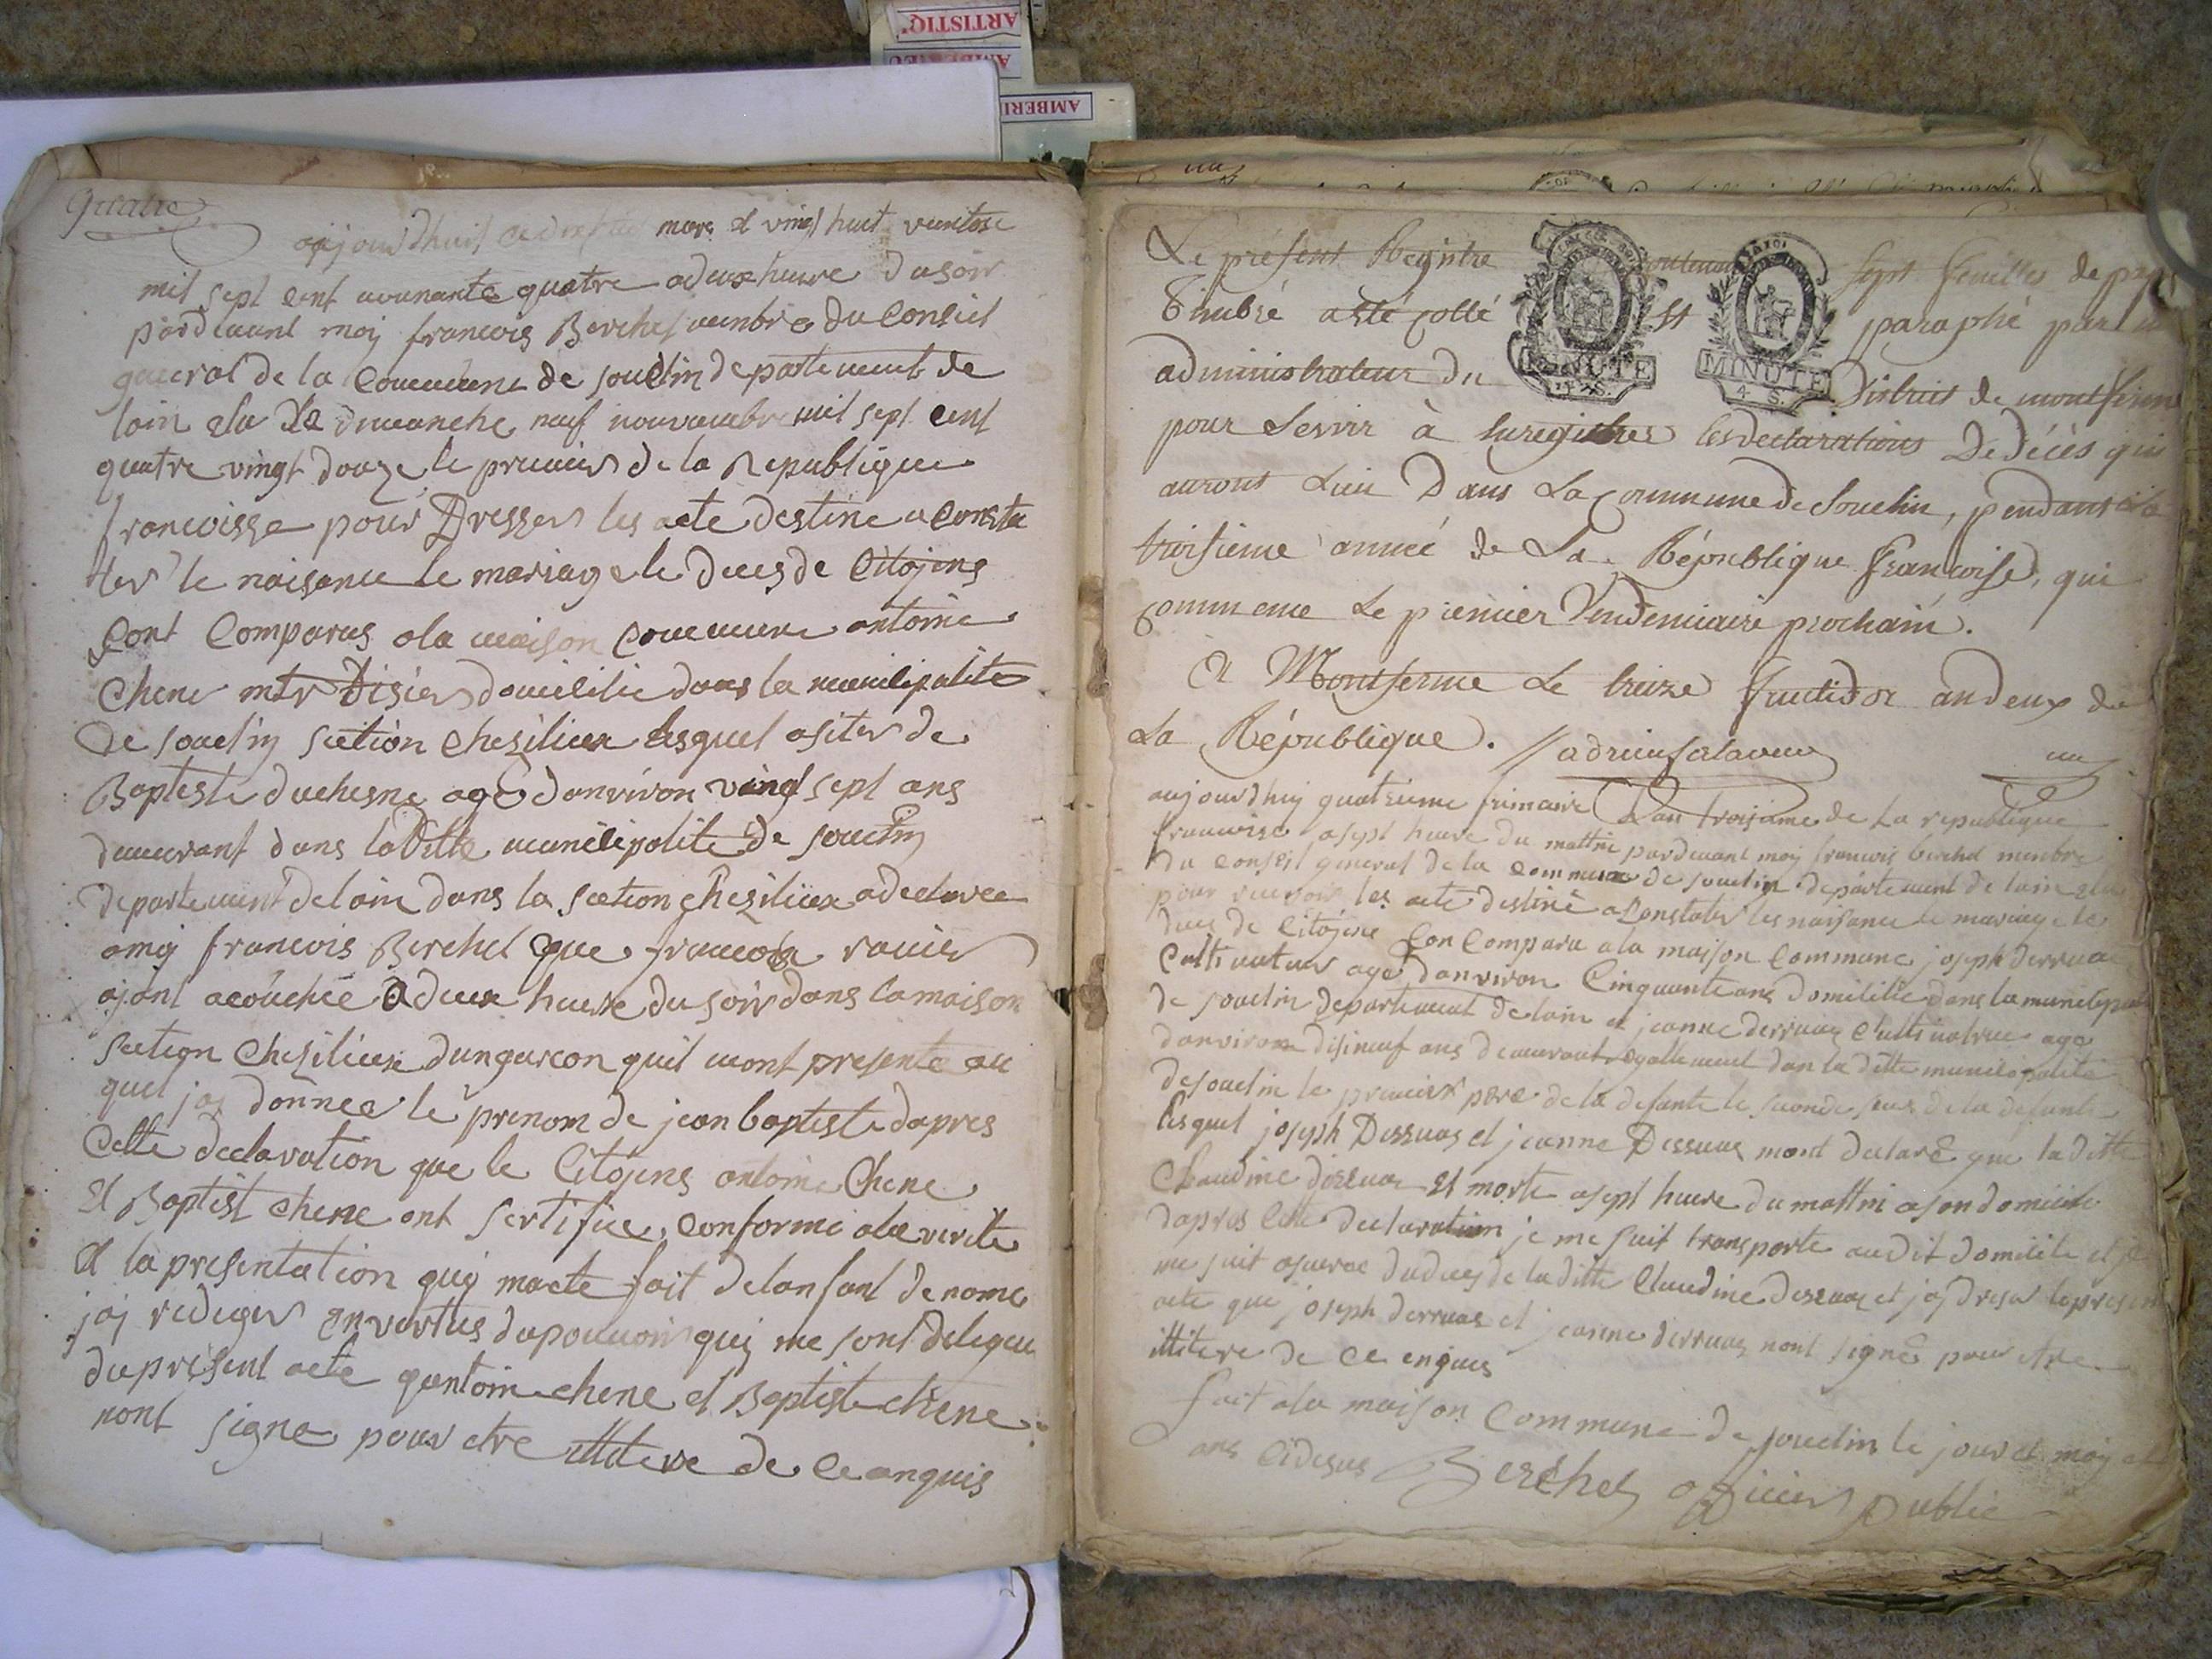 ARTISTIQ'
AMBERIEU
AMBERI
quatre
aujourdhuit mars et vingt huit ventose
mil sept cent nonante quatre a deux heure du soir
pardevant moy francois Berchet membre du Conseil
general de la Commune de souclin departement de
lain elu le dimanche neuf novembre mil sept cent
quatre vingt douze le premier de la Republique
francoisse pour Dresser les acte destine a Consta
ter le naisance le mariage le deces de Citojens
Sont Comparus a la maison Commune antoine
Chene domicilie dans la municipalite
de souclin section Chesilieux lesquel asiter de
Baptiste duchesne age danviron vingt sept ans
demeurant dans laditte municipalite de souclin
departement de lain dans la section Chesilieux a declaree
a moy francois Berchet que ravier
ajant acouchee a deux heure du soir dans la maison
section Chesilieux dun garcon quil mont presente au
quel jaj donnee le prenom de jean baptiste dapres
Cette declaration que le Citojens antoine Chene
Et Baptist chene ont sertifiee conforme a la verite
Et la presentation quij macte fait de lanfant denome
jaj rediger en vertus du pouvoir quij me sont delegue
du present acte quantoine chene et Baptiste chene
nont signe pour etre illitere de Ce anquis
un
Le présent Registre contenant sept feuilles de
Timbré a été cotté et paraphé par
MINUTE
4. S.
MINUTE
4. S.
administrateur du District de montferme
pour servir à Enregistrer les declarations De décès qui
auront Lieu Dans La Commune de Souclin, pendant la
troisieme année de La République francoise, qui
commence Le premier Vendemiaire prochain.
A Montferme Le treize fructidor an deux de
La République.
un
aujourdhuy quatrieme frimaire Lan troisieme de La republique
francoise a sept heure du mattin pardevant moy francois berchet membre
du Conseil general de la Commune de souclin departement de lain elu
pour recevoir les acte destinè a Constater les naisance le mariage le
deces de Citojens Son Compara a la maison Commune joseph derruaz
Cultivateur agé danviron Cinquante ans domicilie dans la municipalite
de souclin departement de lain et jeanne derruaz Cultivatrice age
danviron disineuf ans demeurant egallement dans la ditte municipalite
de souclin le premier pere de la defunte le seconde seur de la defunte
lesquel joseph Derruaz et jeanne Derruaz mont declaré que laditte
Claudine derruaz Et morte a sept heure du mattin a son domicile
dapres Cette declaration je me suit transporte audit domicile et je
me suit asuree du deces de la ditte Claudine derruaz et jaj dreser le present
acte que joseph derruaz et jeanne derruaz nont signé pour etre
illitere de Ce enquis
fait a la maison Commune de souclin le jour et moy et
ans Cidesus Berchet officier public